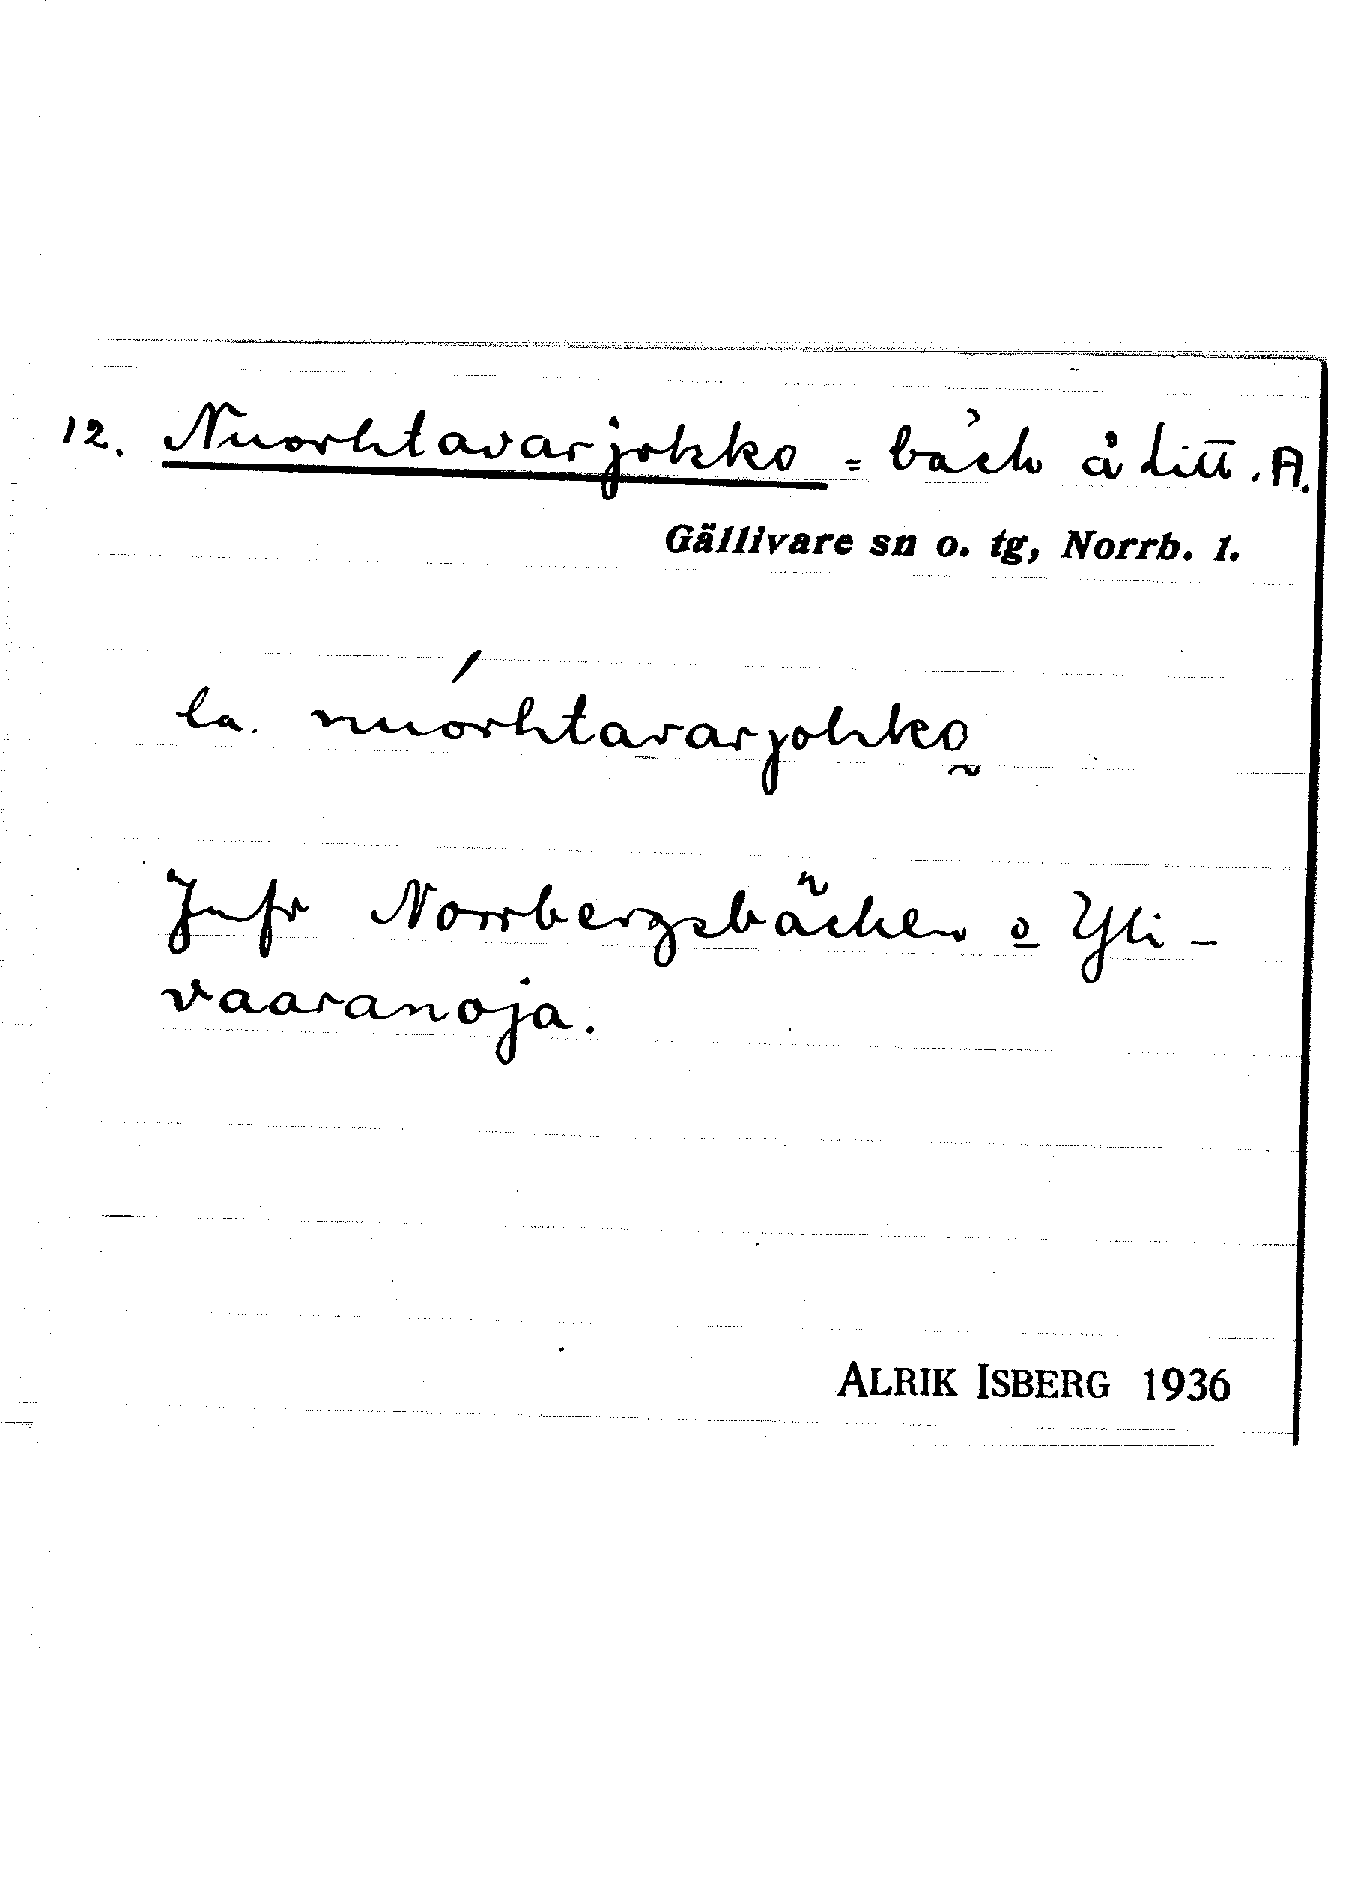 12. Nuorhtavarjokko = bäck å litt. A.
Gällivare sn o. tg, Norrb. l.
la. nuórhtavarjohko̰
Jnfr Norrbergsbäcken o Yli-
vaaranoja.
ALRIK ISBERG 1936